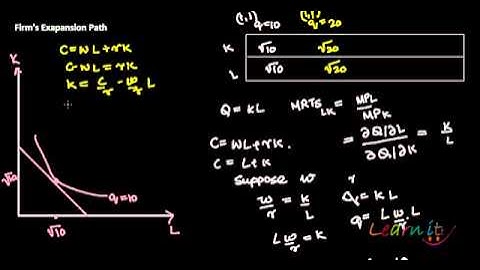 Firm's Exapansion Path
C = WL + rK
C - WL = rK
K = C/r - w/r L
K
√10
q=10
√10
L
(1,1) q=10
(1,1) q=20
K √10 √20
L √10 √20
Q = KL
MRTS LK = MPL/MPK
= ∂Q/∂L / ∂Q/∂K = K/L
C = WL + rK
C = L + K
Suppose w r
w/r = K/L
L w/r = K
q = K L
q = L w/r . L
Learn it